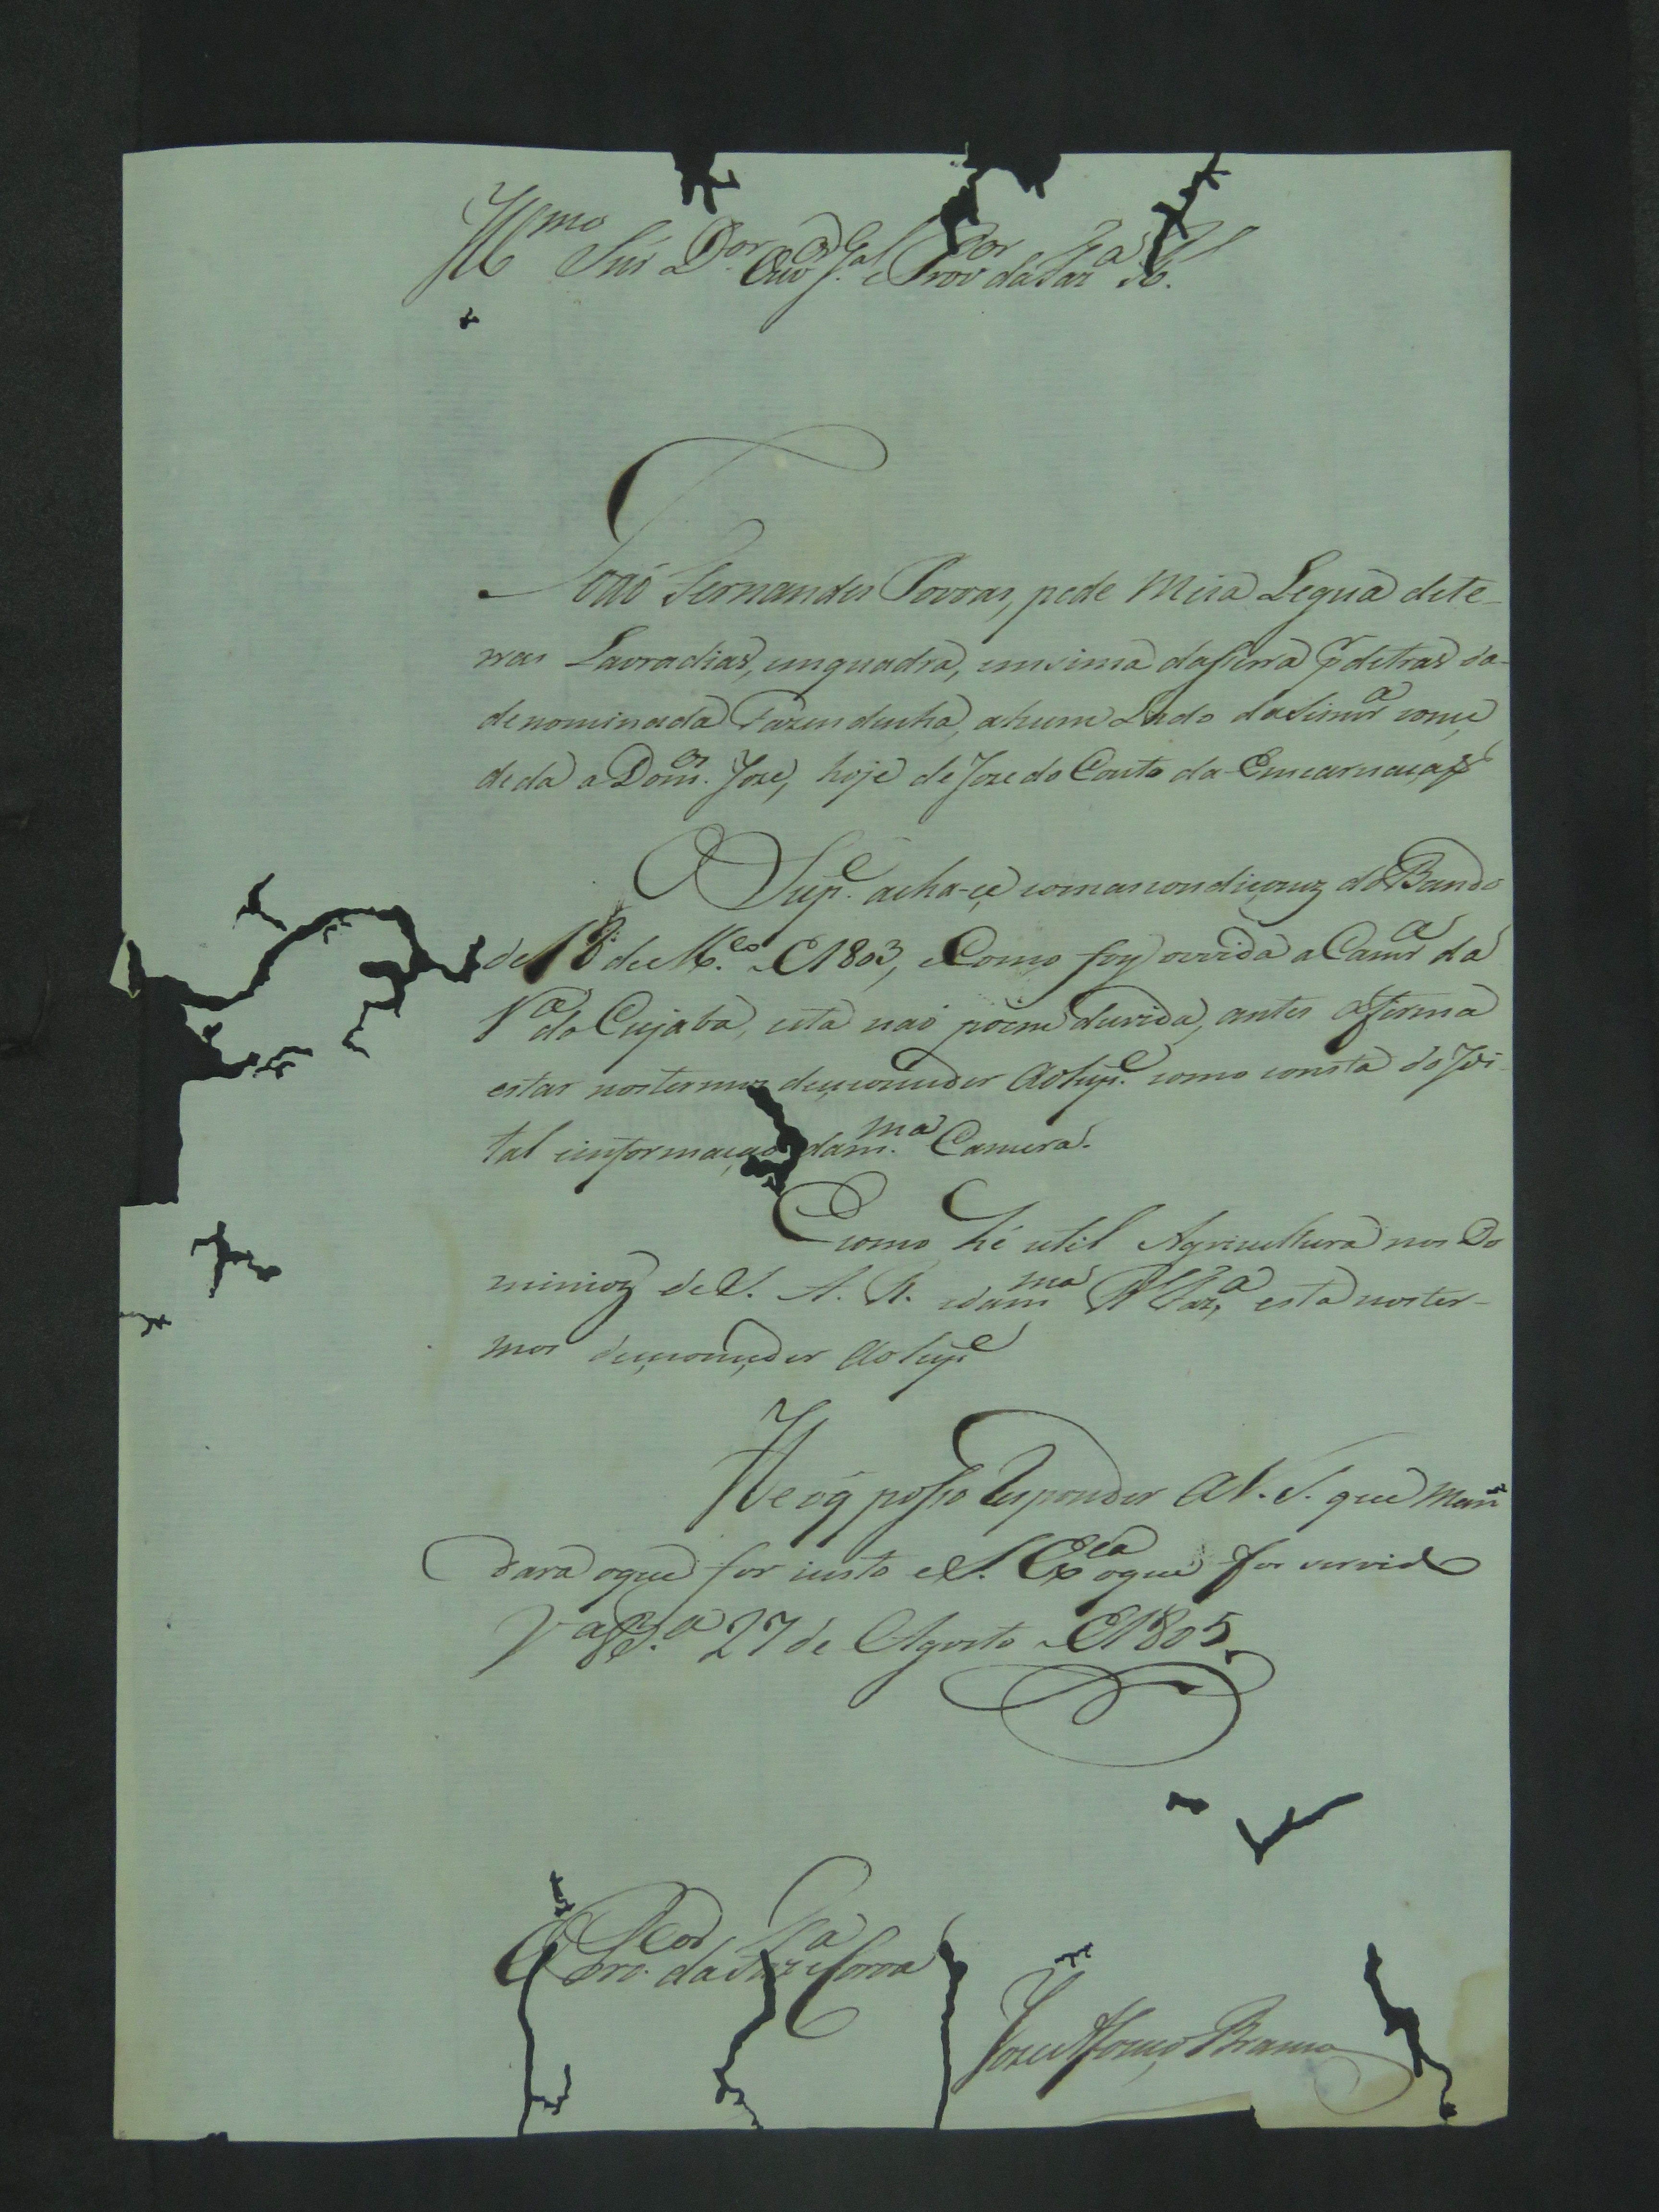 Illmo Snr Dor Ouvor Gal e Provor da Faza Rl
João Fernandes Povoas, pede Meia Legua dete-
rras Lavradias, emquadra, emsima daserra qe detras da
denominada Fazendinha, ahum Lado dasismra conce
deda a Domos. Joze, hoje de Joze do Couto da Emcarnação
O Supe. acha-çe comascondiçoens do Bando
de 18 de M.co de 1803, e Como foy ouvida a Camra da
Va do Cujaba, esta não poem duvida, antes afirma
estar nostermos deçeconceder aoSupe. como consta do Idi-
tal einformação dam.ma Camera.
E como hé util Agricultura nos Do
minios de S. A. R. edamma Rl Faza, esta noster-
mos deçeconçeder ao Supe
He oq poso Responder a V. S. que Man
dara oque for iusto e S. Exca oque for servido
Va Ba. 27 de Agosto de 1805.
O Procor. da Faza e Coroa
Joze Afonço Branco